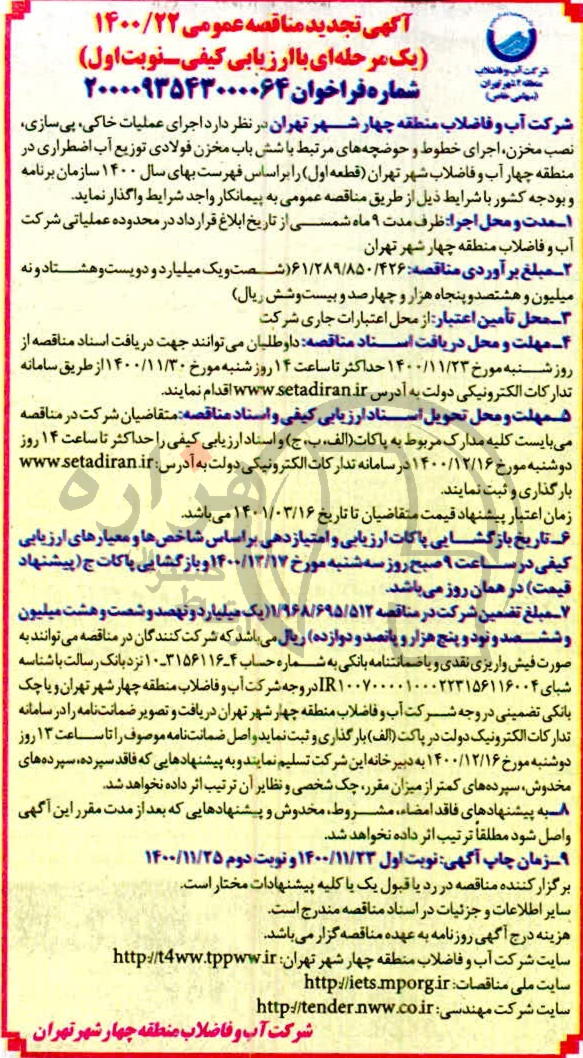 آگهی تجدید مناقصه عمومی ۱۴۰۰/۲۲
(یک مرحله‌ای با ارزیابی کیفی - نوبت اول)
شماره فراخوان ۲۰۰۰۰۹۳۵۴۳۰۰۰۰۶۴
شرکت آب و فاضلاب
منطقه ۴ شهر تهران
(سهامی خاص)
شرکت آب و فاضلاب منطقه چهار شهر تهران در نظر دارد اجرای عملیات خاکی، پی‌سازی،
نصب مخزن، اجرای خطوط و حوضچه‌های مرتبط با شش باب مخزن فولادی توزیع آب اضطراری در
منطقه چهار آب و فاضلاب شهر تهران (قطعه اول) را براساس فهرست بهای سال ۱۴۰۰ سازمان برنامه
و بودجه کشور با شرایط ذیل از طریق مناقصه عمومی به پیمانکار واجد شرایط واگذار نماید.
۱-مدت و محل اجرا: ظرف مدت ۹ ماه شمسی از تاریخ ابلاغ قرارداد در محدوده عملیاتی شرکت
آب و فاضلاب منطقه چهار شهر تهران
۲-مبلغ برآوردی مناقصه: ۶۱/۲۸۹/۸۵۰/۴۲۶(شصت و یک میلیارد و دویست و هشتاد و نه
میلیون و هشتصد و پنجاه هزار و چهارصد و بیست و شش ریال)
۳-محل تأمین اعتبار: از محل اعتبارات جاری شرکت
۴-مهلت و محل دریافت اسناد مناقصه: داوطلبان می‌توانند جهت دریافت اسناد مناقصه از
روز شنبه مورخ ۱۴۰۰/۱۱/۲۳ حداکثر تا ساعت ۱۴ روز شنبه مورخ ۱۴۰۰/۱۱/۳۰ از طریق سامانه
تدارکات الکترونیکی دولت به آدرس www.setadiran.ir اقدام نمایند.
۵-مهلت و محل تحویل اسناد ارزیابی کیفی و اسناد مناقصه: متقاضیان شرکت در مناقصه
می‌بایست کلیه مدارک مربوط به پاکات (الف، ب، ج) و اسناد ارزیابی کیفی را حداکثر تا ساعت ۱۴ روز
دوشنبه مورخ ۱۴۰۰/۱۲/۱۶ در سامانه تدارکات الکترونیکی دولت به آدرس: www.setadiran.ir
بارگذاری و ثبت نمایند.
زمان اعتبار پیشنهاد قیمت متقاضیان تا تاریخ ۱۴۰۱/۰۳/۱۶ می‌باشد.
۶-تاریخ بازگشایی پاکات ارزیابی و امتیازدهی براساس شاخص‌ها و معیارهای ارزیابی
کیفی در ساعت ۹ صبح روز سه‌شنبه مورخ ۱۴۰۰/۱۲/۱۷ و بازگشایی پاکات ج (پیشنهاد
قیمت) در همان روز می‌باشد.
۷-مبلغ تضمین شرکت در مناقصه ۱/۹۶۸/۶۹۵/۵۱۲(یک میلیارد و نهصد و شصت و هشت میلیون
و ششصد و نود و پنج هزار و پانصد و دوازده) ریال می‌باشد که شرکت‌کنندگان در مناقصه می‌توانند به
صورت فیش واریزی نقدی و یا ضمانتنامه بانکی به شماره حساب ۴-۳۱۵۶۱۱۶-۱۰ نزد بانک رسالت با شناسه
شبای IR۱۰۰۷۰۰۰۰۱۰۰۰۲۲۳۱۵۶۱۱۶۰۰۴ در وجه شرکت آب و فاضلاب منطقه چهار شهر تهران و یا چک
بانکی تضمینی در وجه شرکت آب و فاضلاب منطقه چهار شهر تهران دریافت و تصویر ضمانت‌نامه را در سامانه
تدارکات الکترونیک دولت در پاکت (الف) بارگذاری و ثبت نماید و اصل ضمانت‌نامه موصوف را تا ساعت ۱۳ روز
دوشنبه مورخ ۱۴۰۰/۱۲/۱۶ به دبیرخانه این شرکت تسلیم نمایند و به پیشنهادهایی که فاقد سپرده، سپرده‌های
مخدوش، سپرده‌های کمتر از میزان مقرر، چک شخصی و نظایر آن ترتیب اثر داده نخواهد شد.
۸-به پیشنهادهای فاقد امضاء، مشروط، مخدوش و پیشنهادهایی که بعد از مدت مقرر این آگهی
واصل شود مطلقاً ترتیب اثر داده نخواهد شد.
۹-زمان چاپ آگهی: نوبت اول ۱۴۰۰/۱۱/۲۳ و نوبت دوم ۱۴۰۰/۱۱/۲۵
برگزار کننده مناقصه در رد یا قبول یک یا کلیه پیشنهادات مختار است.
سایر اطلاعات و جزئیات در اسناد مناقصه مندرج است.
هزینه درج آگهی روزنامه به عهده مناقصه‌گزار می‌باشد.
سایت شرکت آب و فاضلاب منطقه چهار شهر تهران: http://t4ww.tppww.ir
سایت ملی مناقصات: http://iets.mporg.ir
سایت شرکت مهندسی: http://tender.nww.co.ir
شرکت آب و فاضلاب منطقه چهار شهر تهران
هزاره